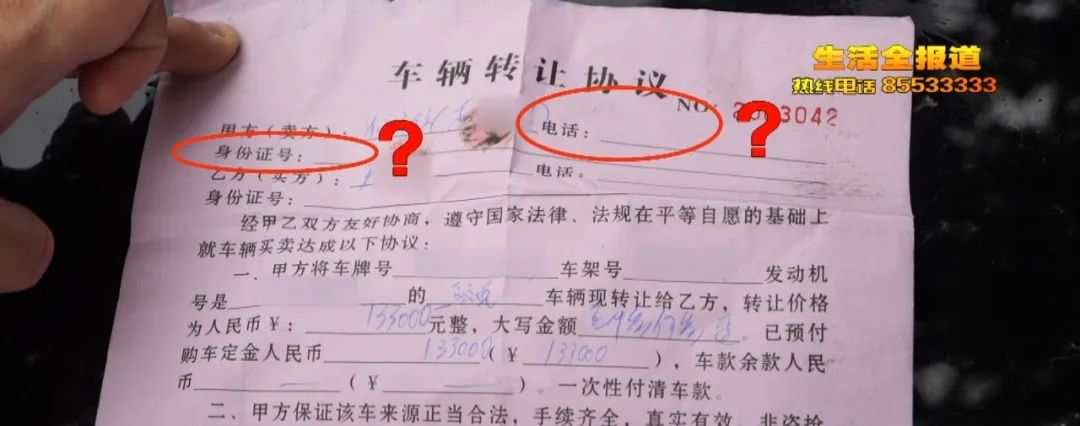 生活全报道
热线电话 85533333
车辆转让协议
NO: 3042
甲方（卖方）：
电话：
身份证号：
乙方（买方）：
电话：
身份证号：
经甲乙双方友好协商，遵守国家法律、法规在平等自愿的基础上
就车辆买卖达成以下协议：
一、甲方将车牌号 车架号 发动机
号是 的 车辆现转让给乙方，转让价格
为人民币￥：133000元整，大写金额 。已预付
购车定金人民币 133000（￥133000），车款余款人民
币 （￥ ）。一次性付清车款。
二、甲方保证该车来源正当合法，手续齐全，真实有效，非盗抢
？
？